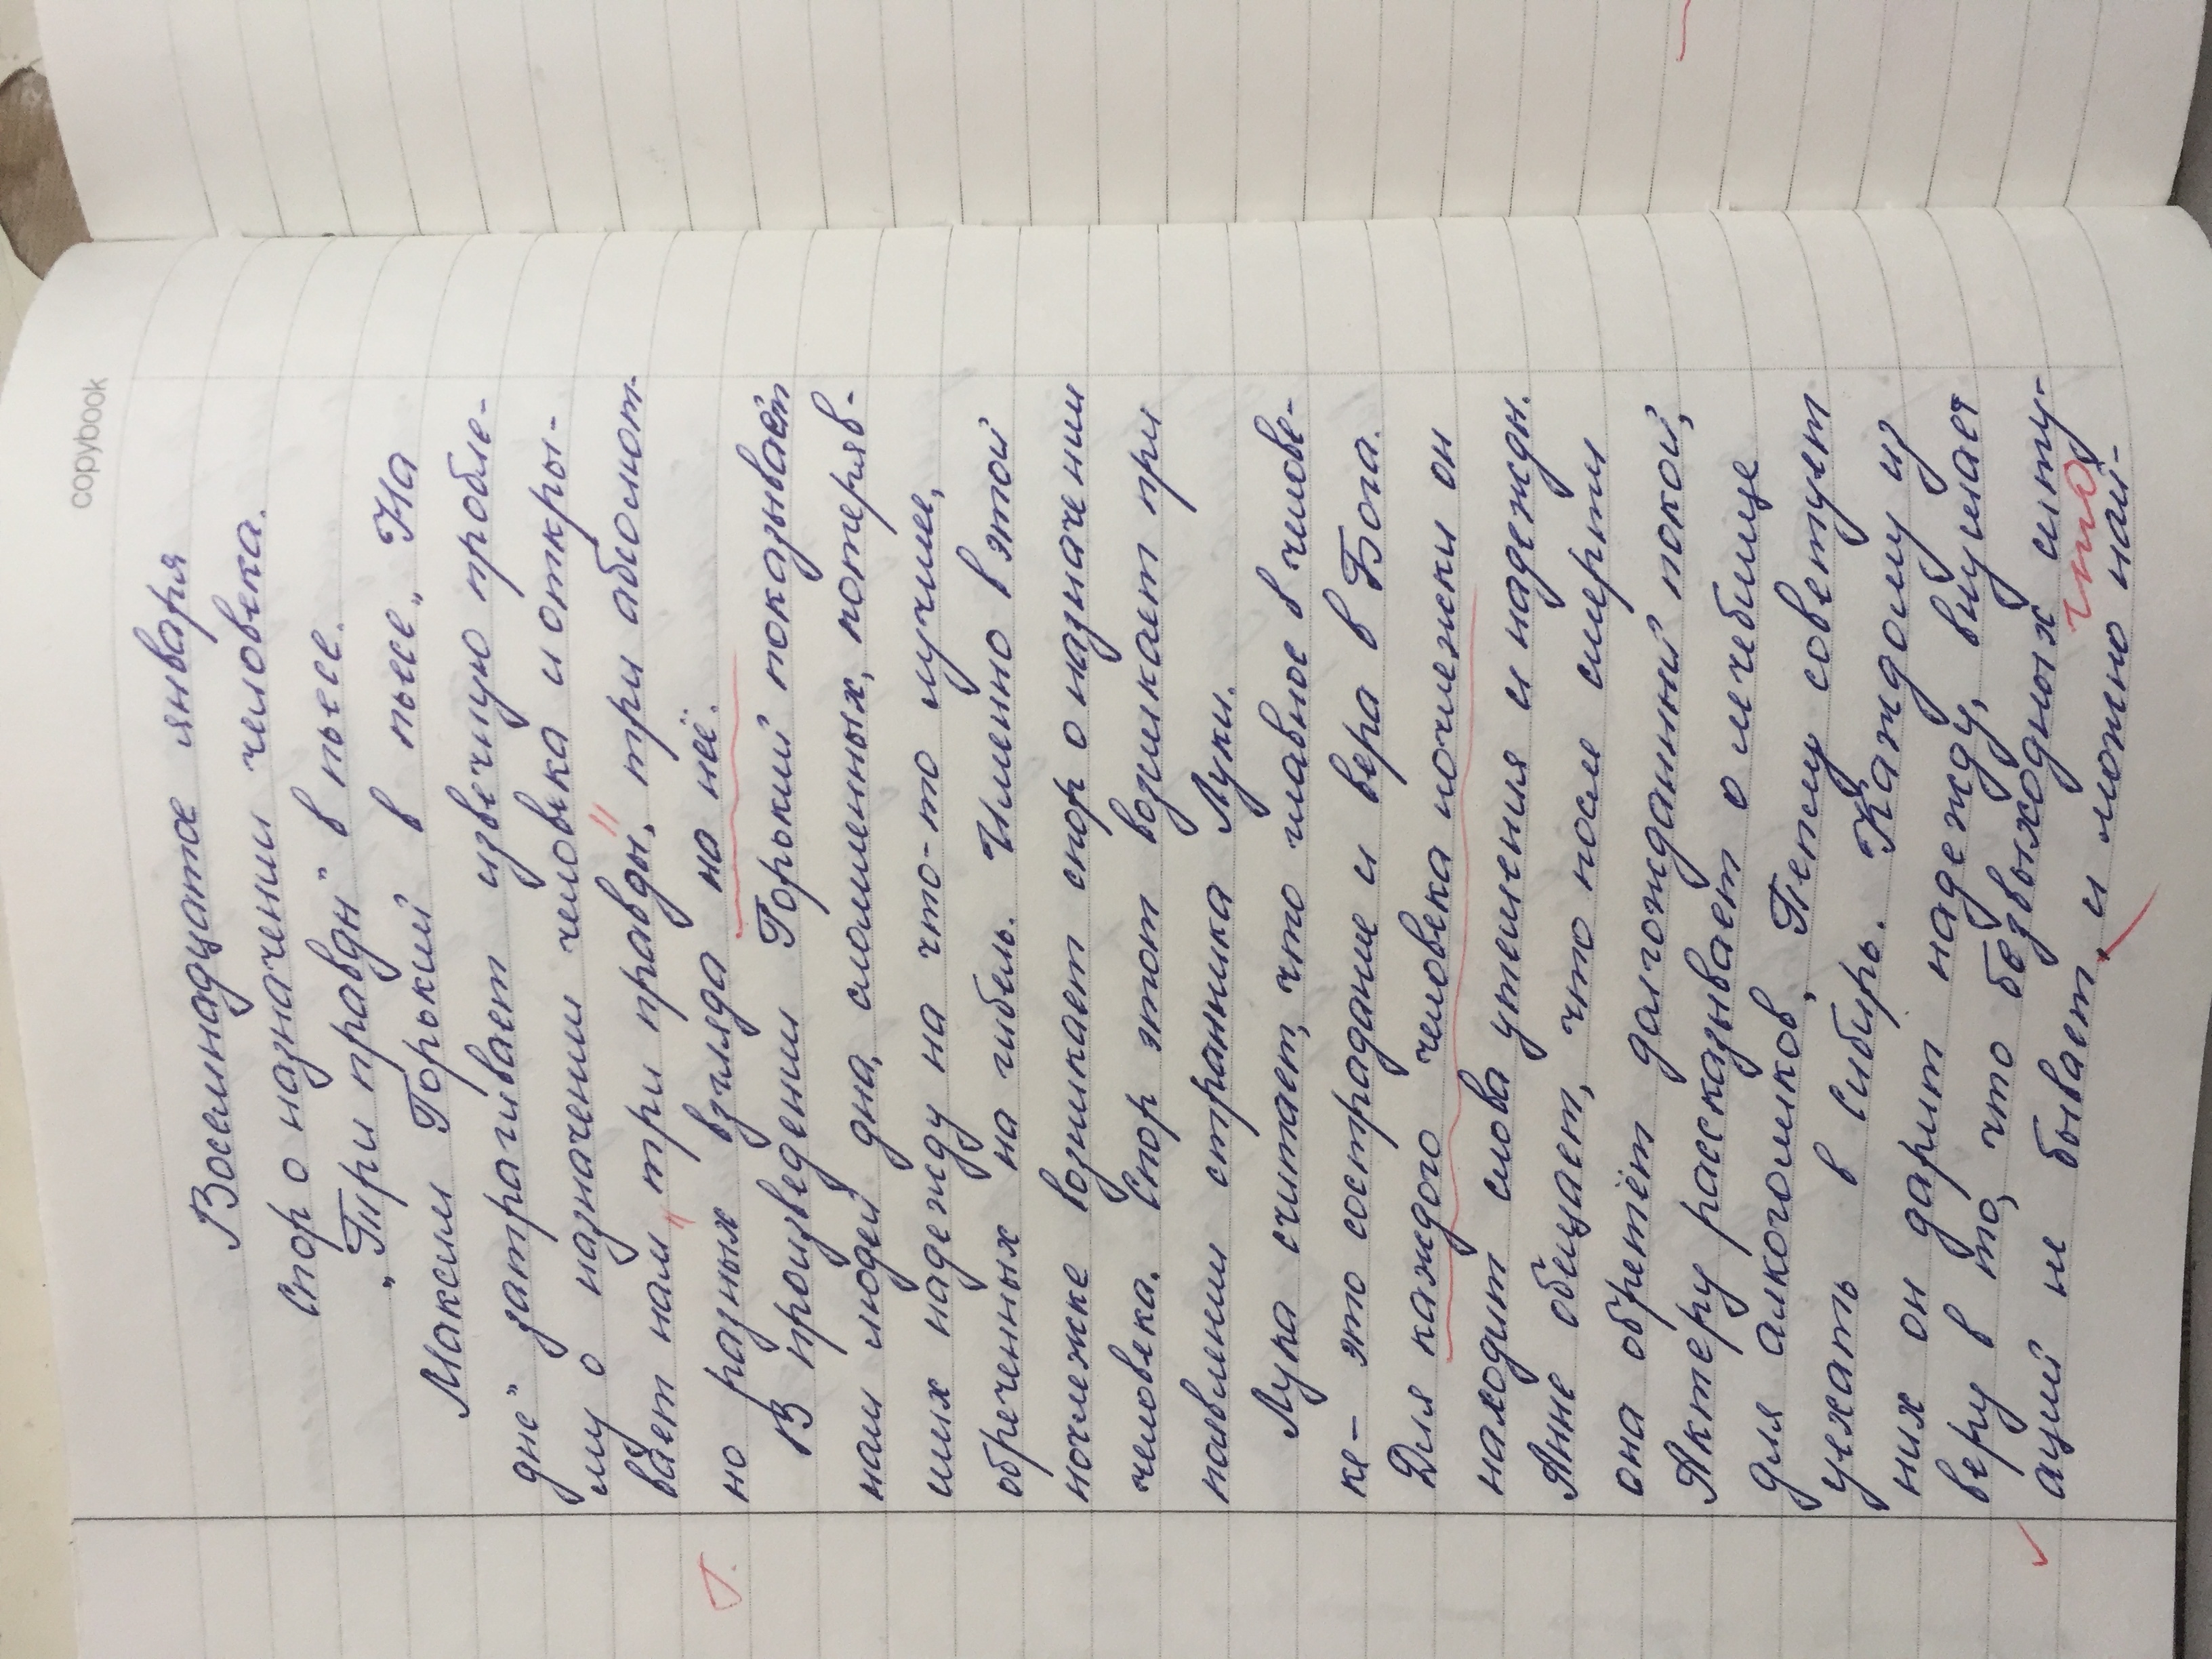 copybook
Восемнадцатое января
Спор о назначении человека.
„Три правды" в пьесе.
Максим Горький в пьесе „На
дне" затрагивает извечную пробле-
му о назначении человека и откры-
вает нам „три правды", три абсолют-
Г. но разных взгляда на неё.
В произведении Горький показывает
нам людей дна, сломленных, потеряв-
ших надежду на что-то лучшее,
обреченных на гибель. Именно в этой
ночлежке возникает спор о назначении
человека. Спор этот возникает при
появлении странника Луки.
Лука считает, что главное в челове-
ке- это сострадание и вера в Бога.
Для каждого человека ночлежки он
находит слова утешения и надежды.
Анне обещает, что после смерти
она обретёт долгожданный покой,
Актеру рассказывает о лечебнице
для алкоголиков, Пеплу советует
уехать в Сибирь. Каждому из
них он дарит надежду, внушает
веру в то, что безвыходных ситу-
аций не бывает, и можно най-
что